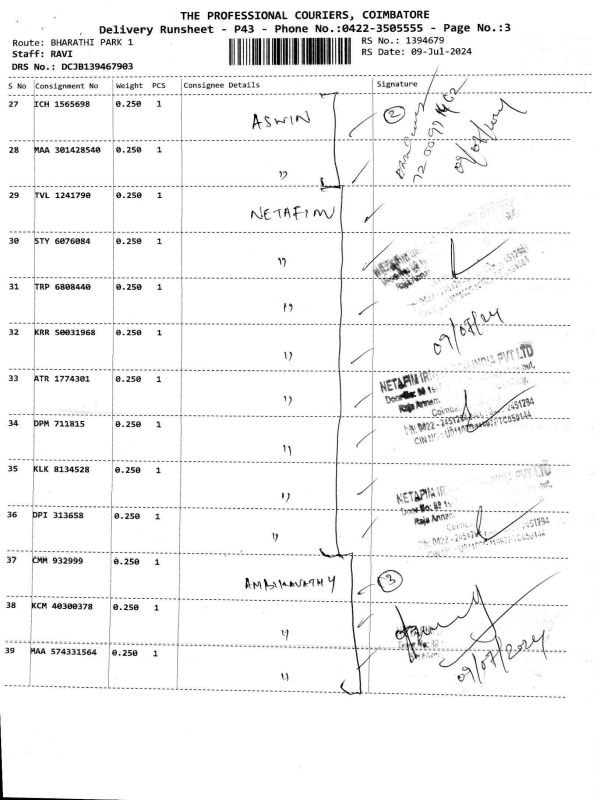 THE PROFESSIONAL COURIERS, COIMBATORE
Delivery Runsheet - P43 - Phone No.:0422-3505555 - Page No.:3
Route: BHARATHI PARK 1
RS No.: 1394679
Staff: RAVI
RS Date: 09-Jul-2024
DRS No.: DCJB139467903
S No Consignment No Weight PCS Consignee Details Signature
27 ICH 1565698 0.250 1 ASWIN 2
28 MAA 301428540 0.250 1 " 09/07/2024
29 TVL 1241790 0.250 1 NETAFIM
30 STY 6076084 0.250 1 "
31 TRP 6808440 0.250 1 "
32 KRR 50031968 0.250 1 " 09/07/24
33 ATR 1774301 0.250 1 " NETAFIM PVT LTD
Raja Annam
34 DPM 711815 0.250 1 " 2451294
35 KLK 8134528 0.250 1 " NETAFIM PVT LTD
Raja Annam
36 DPI 313658 0.250 1 "
37 CMM 932999 0.250 1 AMBIKAVATHY 3
38 KCM 40300378 0.250 1 "
39 MAA 574331564 0.250 1 " 09/07/2024